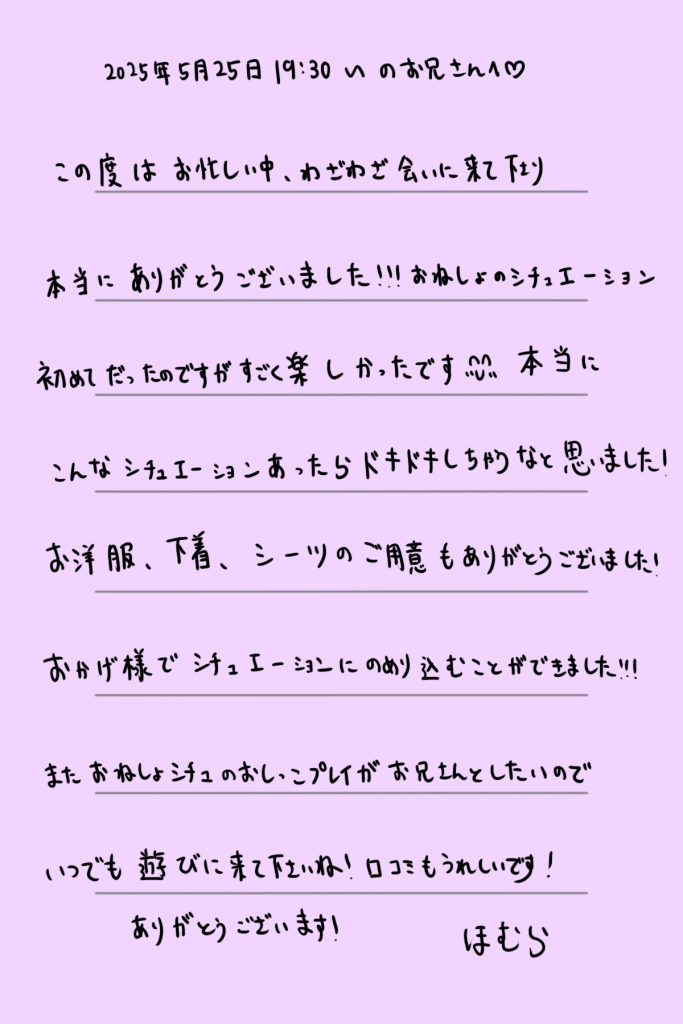 2025年5月25日 19:30 い のお兄さんへ♡
この度は お忙しい中、わざわざ 会いに来て下さり
本当に ありがとうございました!!! おねしょのシチュエーション
初めてだったのですがすごく楽しかったです 本当に
こんな シチュエーションあったらドキドキしちゃうなと思いました!
お洋服、下着、シーツのご用意もありがとうございました!
おかげ様で シチュエーションにのめり込むことができました!!!
また おねしょシチュのおしっこプレイがお兄さんとしたいので
いつでも 遊びに来て下さいね! 口コミもうれしいです!
ありがとうございます!
ほむら